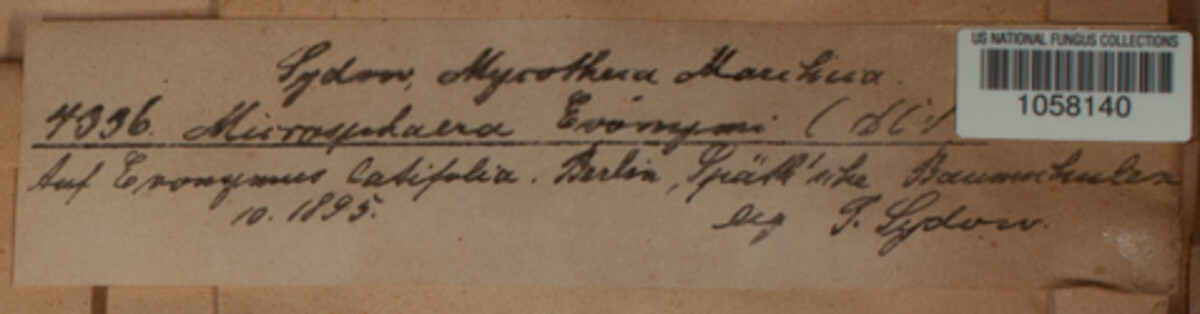 Sydow, Mycotheca Marchica.
US NATIONAL FUNGUS COLLECTIONS
1058140
4336. Microsphaera Evonymi (DC.)
Auf Evonymus latifolia. Berlin, Späth'sche Baumschulen
10. 1895.
leg P. Sydow.